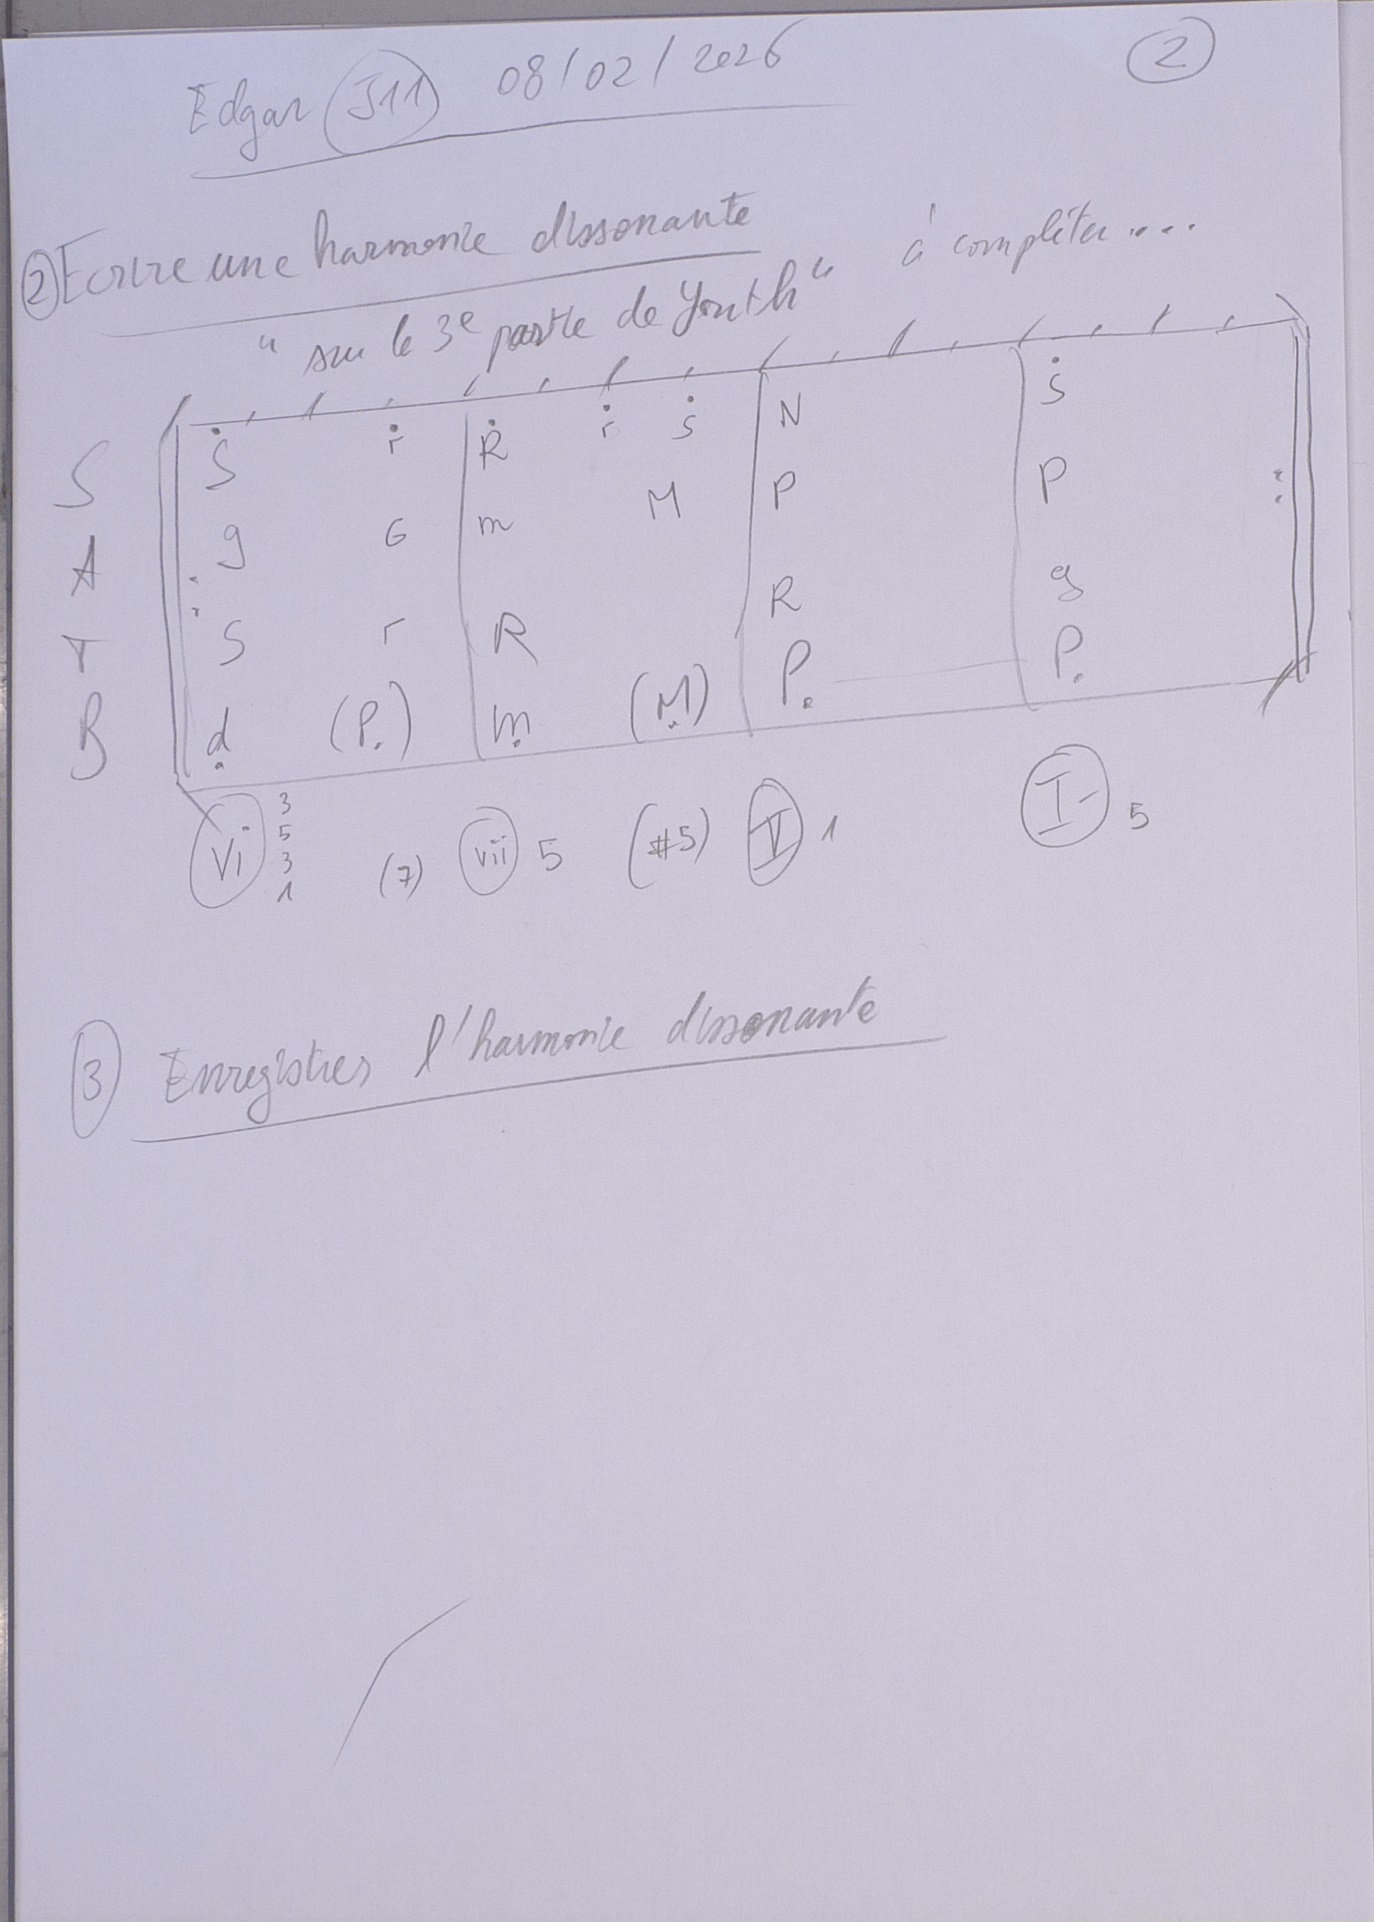 Edgar J11 08/02/2026
2
② Ecrire une harmonie dissonante
"sur le 3e partie de Youth" à compléter....
S Ṡ ṙ Ṙ ṙ ṡ N Ṡ
A g G m M P P
T S r R R g
B ḍ (P.) ṃ (Ṃ) P. P.
vi 3 5 3 1 (7) vii 5 (#5) V 1 I- 5
③ Enregistres l'harmonie dissonante